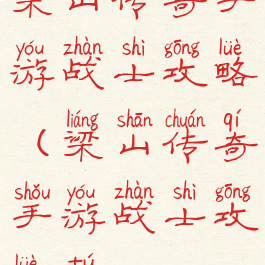 梁山传奇手
yóu zhàn shì gōng lüè
游战士攻略
liáng shān chuán qí
（梁山传奇
shǒu yóu zhàn shì gōng
手游战士攻
lüè tú